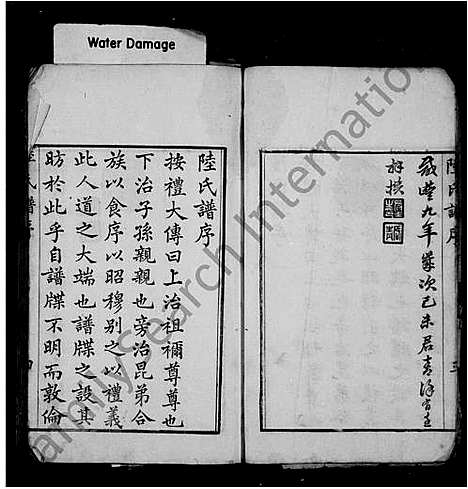 Water Damage
陸氏譜序
咸豐九年歲次己未居
拜撰
陸氏譜序
按禮大傳曰上治祖禰尊尊也
下治子孫親親也旁治昆弟合
族以食序以昭穆別之以禮義
此人道之大端也譜牒之設其
昉於此乎自譜牒不明而敦倫
FamilySearch International